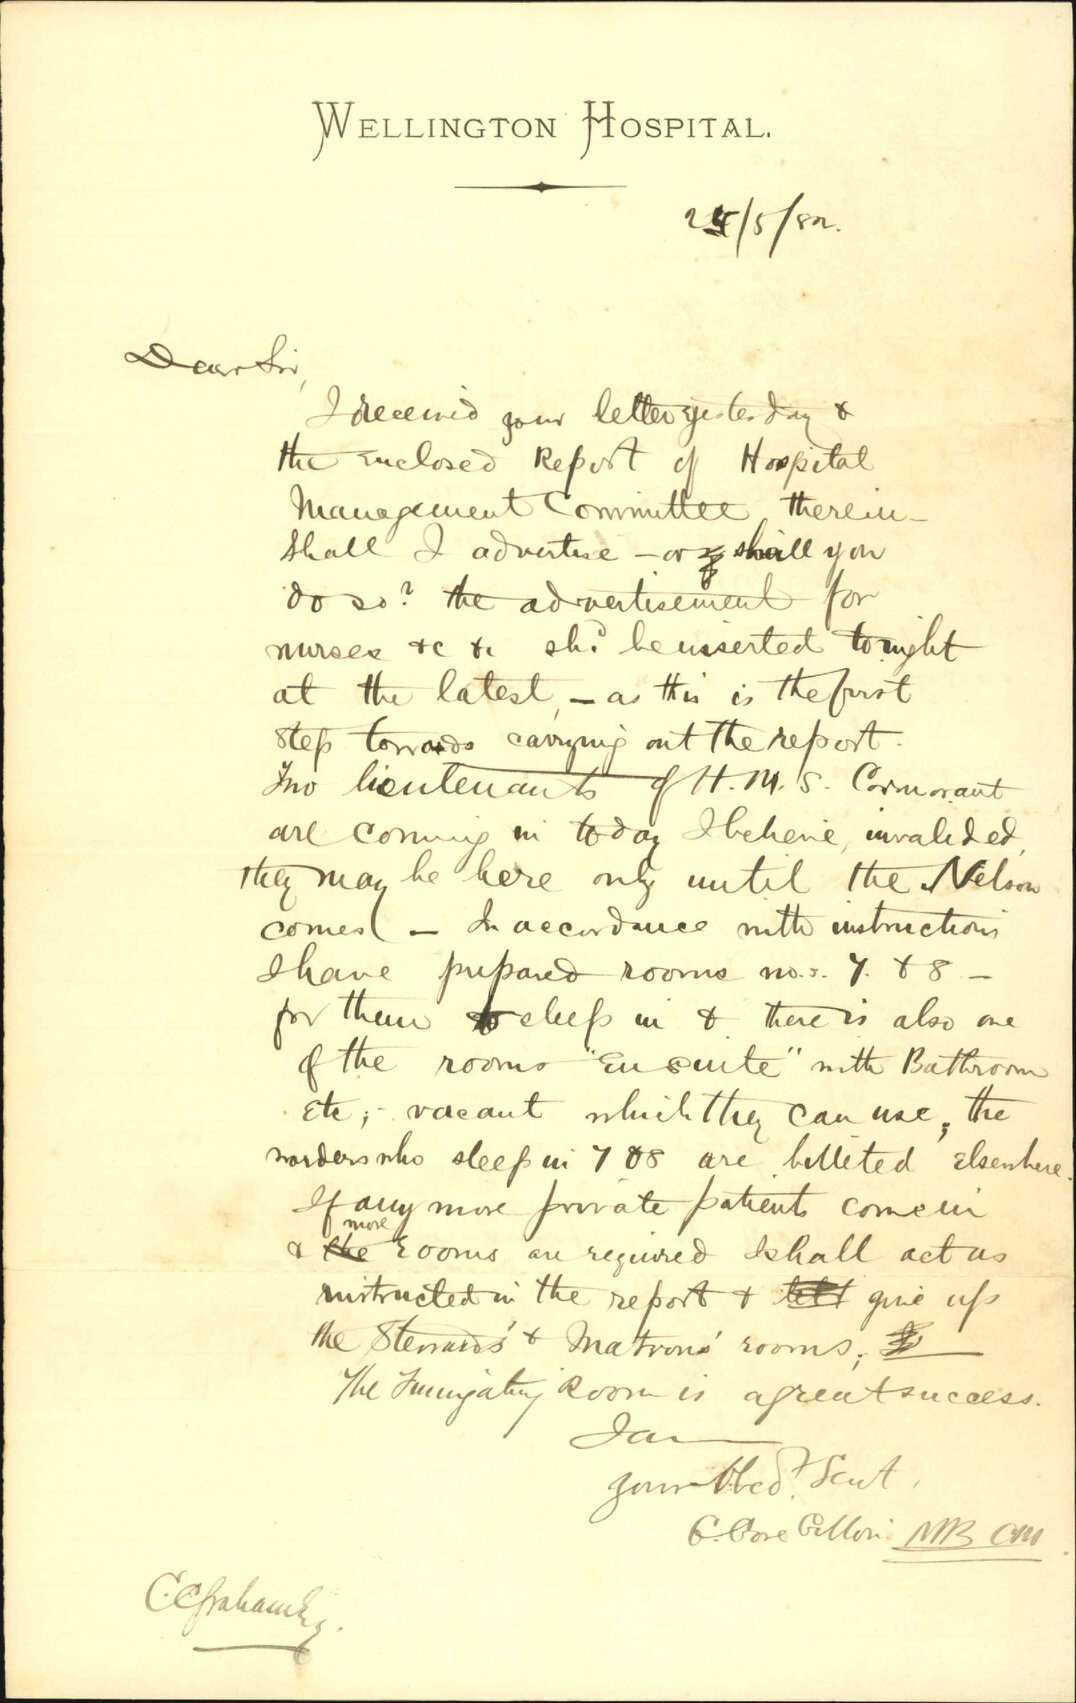 WELLINGTON HOSPITAL.
24/5/82.
Dear Sir,
I received your letter yesterday &
the enclosed Report of Hospital
Management Committee therein –
Shall I advertise – or shall you
do so? the advertisement for
nurses &c &c shd. be inserted tonight
at the latest, – as this is the first
step towards carrying out the report.
Two lieutenants of H.M.S. Cormorant
are coming in today I believe, invalided,
they may be here only until the Nelson
comes – In accordance with instructions
I have prepared rooms no.s. 7. & 8 –
for them to sleep in & there is also one
of the rooms "En suite" with Bathroom
Etc; – vacant which they can use; the
warders who sleep in 7 & 8 are billeted elsewhere.
If any more private patients come in
& the more rooms are required I shall act as
instructed in the report & give up
the Stewards' & Matrons' rooms;
The Fumigating Room is a great success.
I am
your Obedt. Servt.
C. Gore Gillon MB CM.
C C Graham Esq.